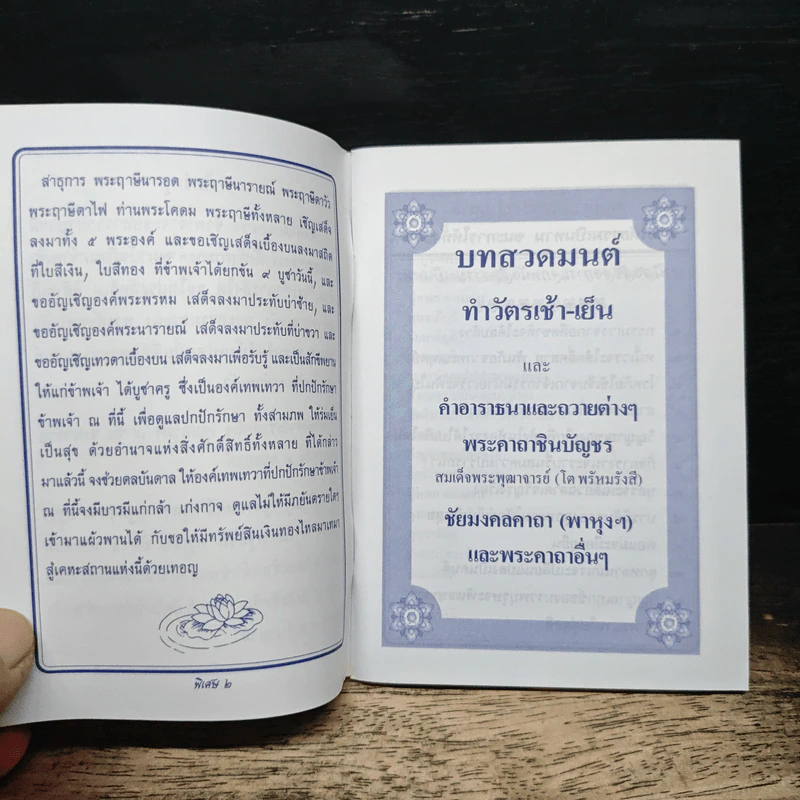 สาธุการ พระฤาษีนารอด พระฤาษีนารายณ์ พระฤาษีตาวัว
พระฤาษีตาไฟ ท่านพระโคดม พระฤาษีทั้งหลาย เชิญเสด็จ
ลงมาทั้ง ๕ พระองค์ และขอเชิญเสด็จเบื้องบนลงมาสถิต
ที่ใบสีเงิน, ใบสีทอง ที่ข้าพเจ้าได้ยกขัน ๙ บูชาวันนี้, และ
ขออัญเชิญองค์พระพรหม เสด็จลงมาประทับบ่าซ้าย, และ
ขออัญเชิญองค์พระนารายณ์ เสด็จลงมาประทับที่บ่าขวา และ
ขออัญเชิญเทวดาเบื้องบน เสด็จลงมาเพื่อรับรู้ และเป็นสักขีพยาน
ให้แก่ข้าพเจ้า ได้บูชาครู ซึ่งเป็นองค์เทพเทวา ที่ปกปักรักษา
ข้าพเจ้า ณ ที่นี้ เพื่อดูแลปกปักรักษา ทั้งสามภพ ให้ร่มเย็น
เป็นสุข ด้วยอำนาจแห่งสิ่งศักดิ์สิทธิ์ทั้งหลาย ที่ได้กล่าว
มาแล้วนี้ จงช่วยดลบันดาล ให้องค์เทพเทวาที่ปกปักรักษาข้าพเจ้า
ณ ที่นี้จงมีบารมีแก่กล้า เก่งกาจ ดูแลไม่ให้มีภยันตรายใดๆ
เข้ามาแผ้วพานได้ กับขอให้มีทรัพย์สินเงินทองไหลมาเทมา
สู่เคหะสถานแห่งนี้ด้วยเทอญ
พิเศษ ๒
บทสวดมนต์
ทำวัตรเช้า-เย็น
และ
คำอาราธนาและถวายต่างๆ
พระคาถาชินบัญชร
สมเด็จพระพุฒาจารย์ (โต พรัหมรังสี)
ชัยมงคลคาถา (พาหุงฯ)
และพระคาถาอื่นๆ